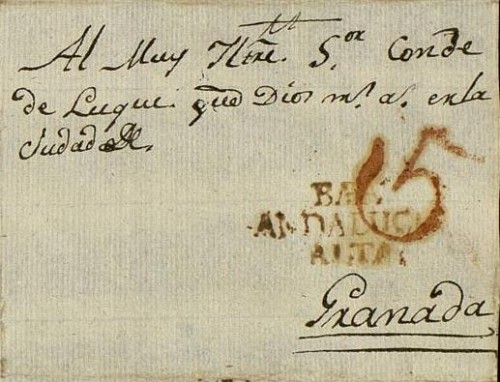 Al Muy Iltre. Sor Conde
de Luque. que Dios ms. as. en la
Ciudad de
15
BAE
ANDALUCIA
ALTA
Granada